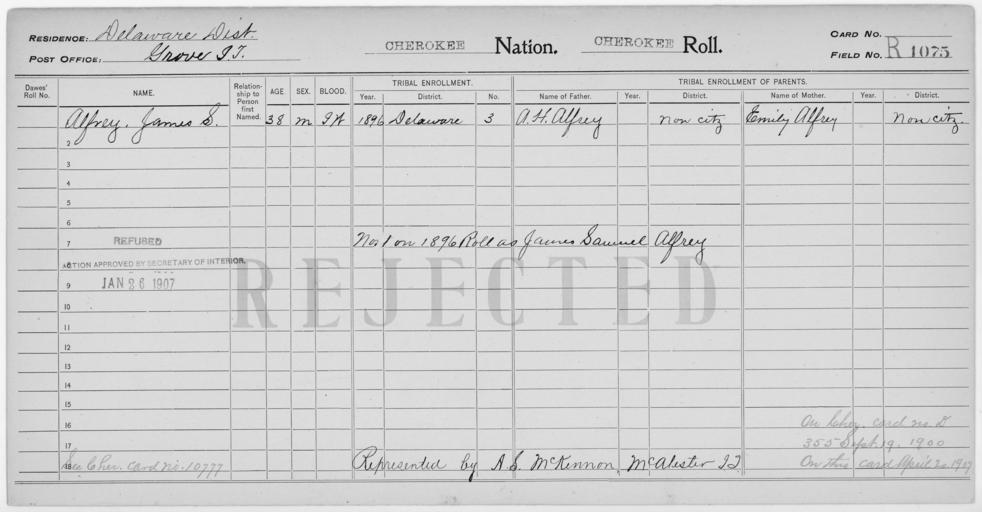 RESIDENCE: Delaware Dist.
POST OFFICE: Grove I.T.
CHEROKEE Nation. CHEROKEE Roll.
CARD NO.
FIELD NO. R 1075
Dawes' Roll No.
NAME.
Relationship to Person first Named.
AGE
SEX.
BLOOD.
TRIBAL ENROLLMENT.
Year. District. No.
TRIBAL ENROLLMENT OF PARENTS.
Name of Father. Year. District. Name of Mother. Year. District.
Alfrey, James S. 38 m IW 1896 Delaware 3 A.H. Alfrey non citz Emily Alfrey non citz.
2
3
4
5
6
7 REFUSED No 1 on 1896 Roll as James Samuel Alfrey
8 ACTION APPROVED BY SECRETARY OF INTERIOR.
9 JAN 26 1907
REJECTED
10
11
12
13
14
15
16 On Cher. card no. D
17 355 Sept. 19, 1900
18 See Cher. card no. 10777 Represented by A.S. McKennon, McAlester IT On this card April 20, 1907